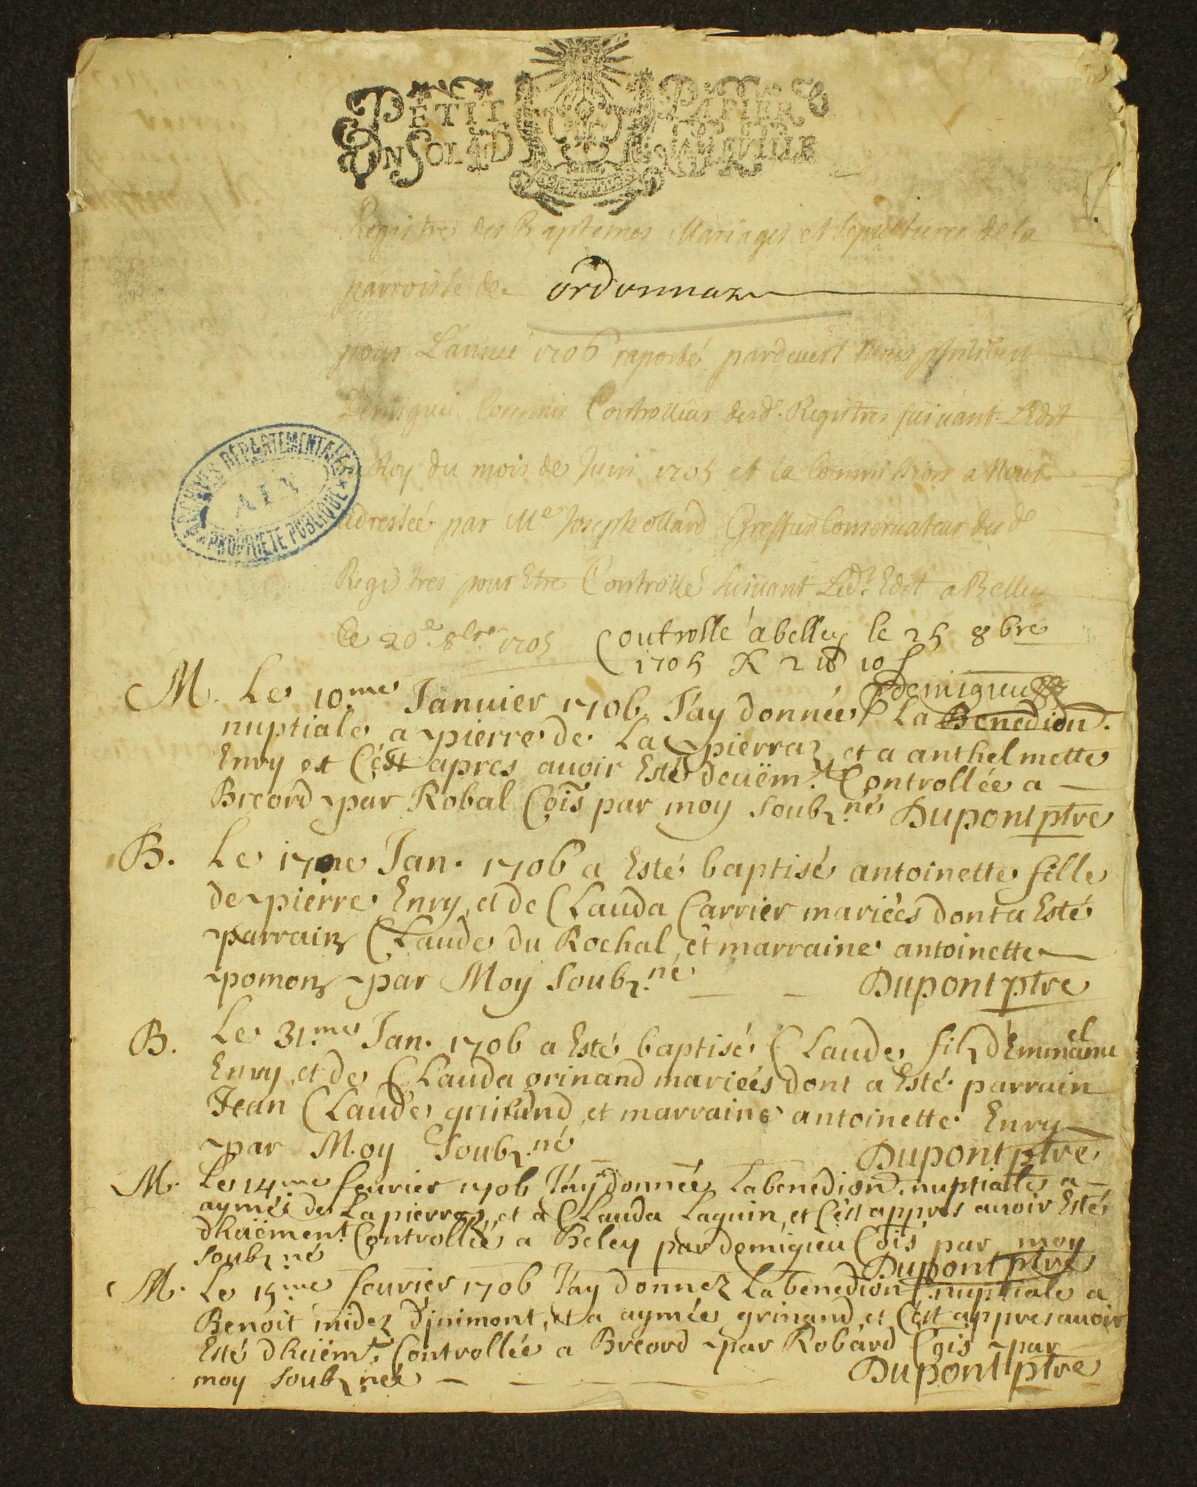 PETIT PAPIER
UN SOL LA D
Registres des Baptemes Mariages et sepultures de la
parroisse de ordonnaz
pour L'année 1706 raporté pardevent Nous
Demigueu Commis Controlleur desd. Registres suivant L'Edit
Roy du mois de Juin 1705 et la Commission a Nous
adressée par Me Joseph ollard Greffier Conservateur desd
Registres pour Etre Controllé suivant Led.t Edit a Belley
Ce 20e 8bre 1705
ARCHIVES DÉPARTEMENTALES
AIN
PROPRIÉTÉ PUBLIQUE
Controllé a belley le 25 8bre
1705 R 2 ₶ 10 s
Demigueu
M. Le 10.me Januier 1706 J'ay donnée La Benediōn.
nuptiale a pierre de La pierraz et a anthelmette
Enry et C'ést apres auoir Esté deuëm.t Controllée a
Breord par Robal Cōis par moy Soubz.né Dupont ptre
B. Le 17me Jan. 1706 a Esté baptisé antoinette fille
de pierre Enry et de CLauda Carrier mariées dont a Esté
parrain CLaude du Rochal et marraine antoinette
pomon par Moy Soubz.né Dupont ptre
B. Le 31.me Jan. 1706 a Esté baptisé CLaude filz d'Emmanuel
Enry et de CLauda grinand mariées dont a Esté parrain
Jean CLaude grinand et marraine antoinette Enry
par Moy Soubz.né Dupont ptre
M. Le 14me feurier 1706 J'ay donnée La benediōn. nuptialle a
aymée de La pierraz et a CLauda Laguin et C'ést appres auoir Esté
dhuëment Controllée a Beley par demigieu Cōis par moy
Soubz.né Dupont ptre
M. Le 15.me feurier 1706 J'ay donnez La benediōn. nuptiale a
Benoit midez D'jnimont, et a aymée grinand et C'ést appres auoir
Esté dhuëm.t Controllée a Breord par Robard Cōis par
moy Soubz née Dupont ptre